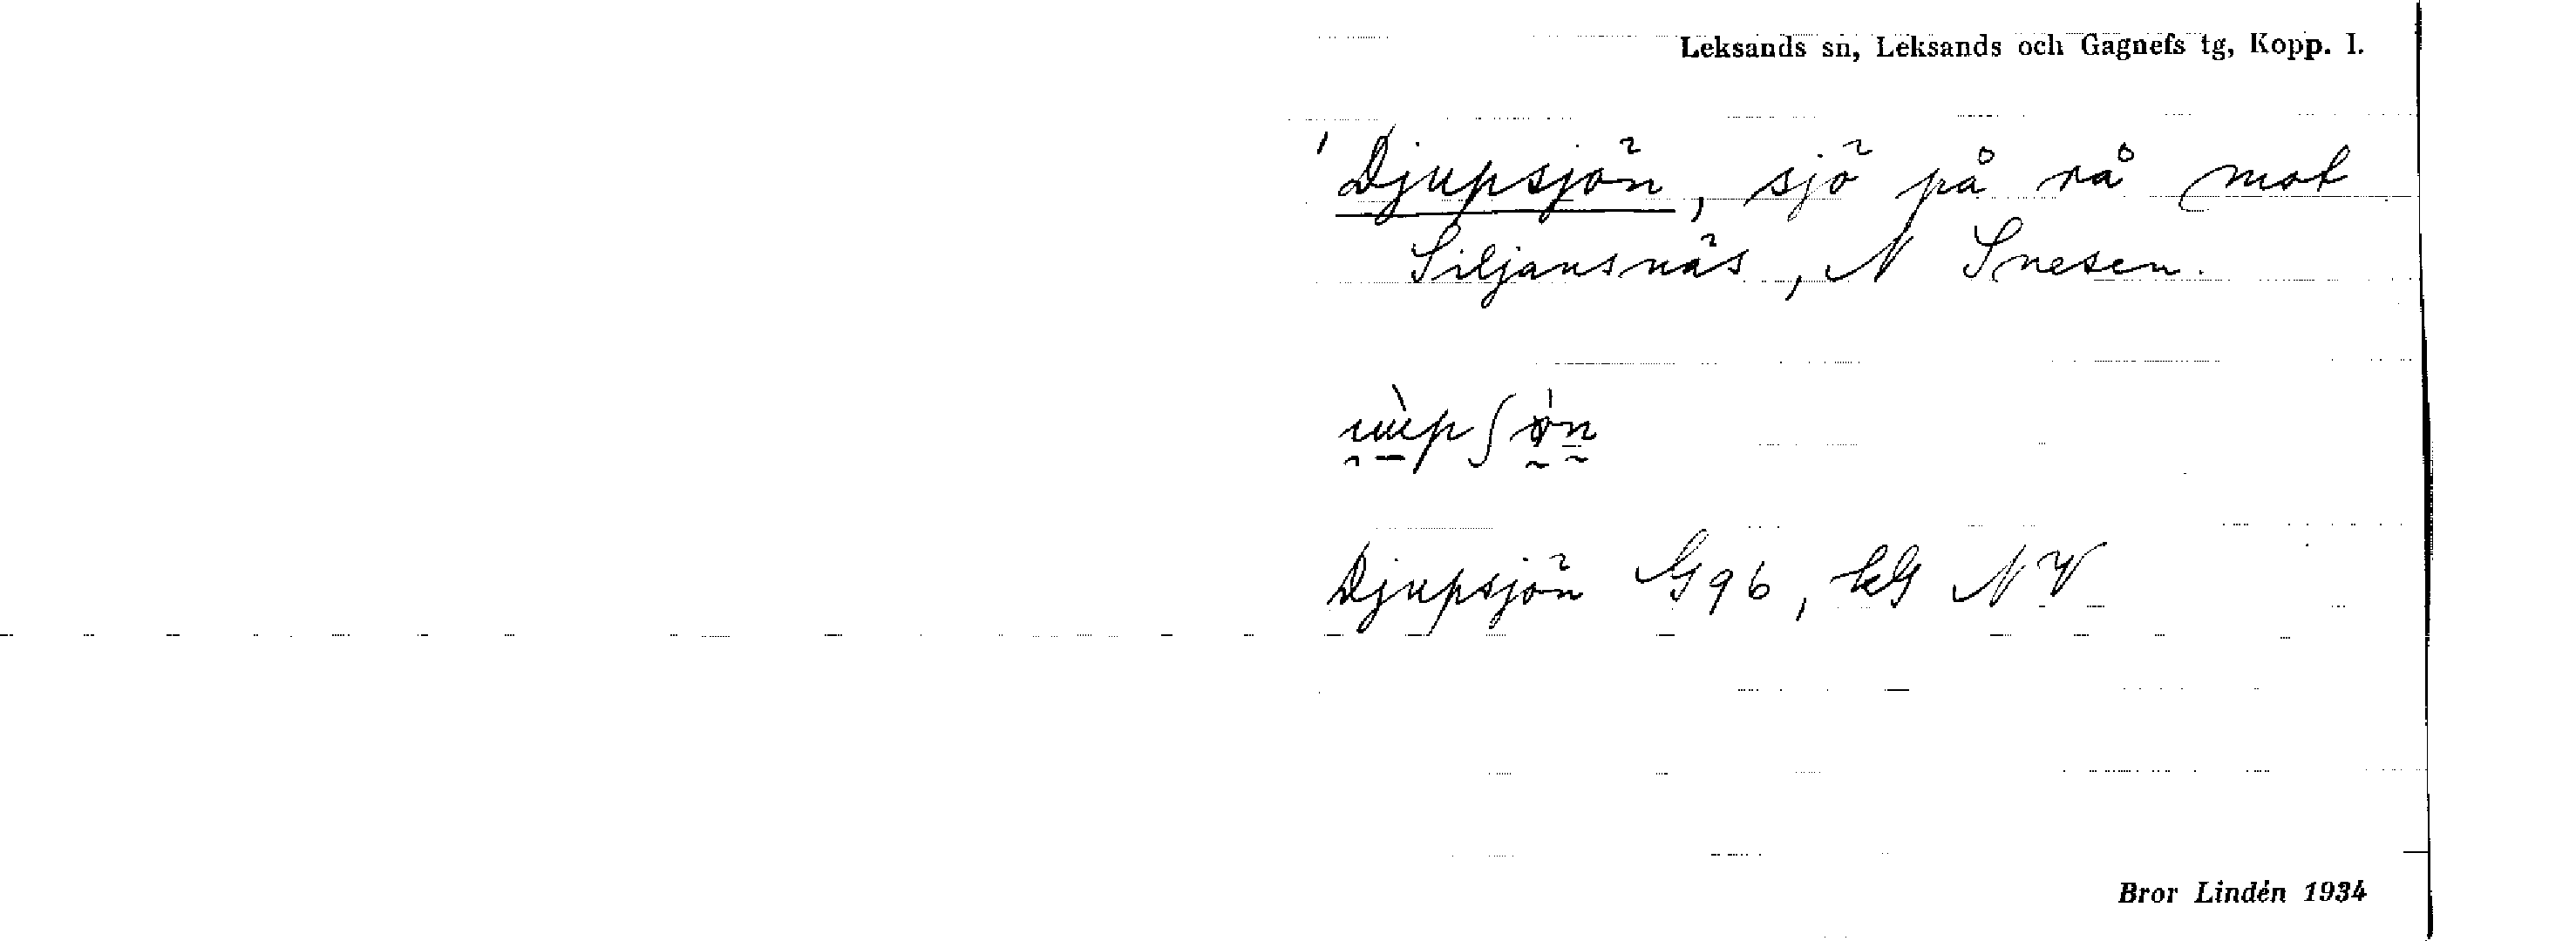 Leksands sn, Leksands och Gagnefs tg, Kopp. l.
' Djupsjön, sjö på rå mot
Siljansnäs, N Snesen.
Djupsjön G96, kG NV
Bror Lindén 1934